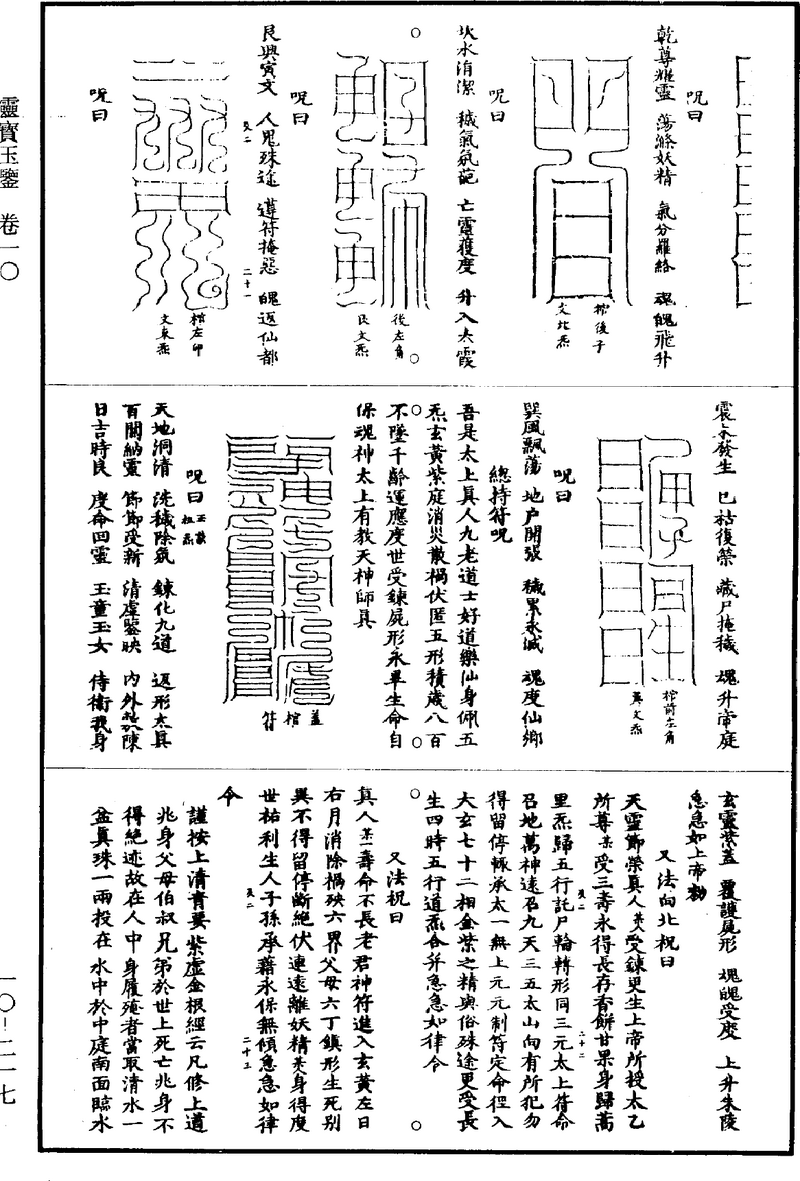 靈寶玉鑒 卷一〇
一〇–二一七
呪曰
乾尊耀靈 蕩滌妖精 氣分羅絡 魂魄飛升
棺後子
文北炁
呪曰
坎水清潔 穢氣氛葩 亡靈獲度 升入太霞
後左角
艮文炁
呪曰
艮與寅文 人鬼殊途 遵符掩惡 魄返仙都
棺左卯
文東炁
呪曰
震木發生 已枯復榮 藏尸掩穢 魂升帝庭
棺前左角
巽文炁
呪曰
巽風飄蕩 地户開張 穢累永滅 魂度仙鄉
總持符呪
吾是太上真人九老道士好道樂仙身佩五
炁玄黄紫庭消災散禍伏匿五形積歲八百
不墜千齡運應度世受鍊屍形永畢生命自
保魂神太上有教天神師真
蓋
棺
符
呪曰
天地洞清 洗穢除氛 鍊化九道 返形太真
百關納靈 節節受新 清虛鑒映 內外敷陳
日吉時良 度命回靈 玉童玉女 侍衛我身
玄靈紫蓋 覆護屍形 魂魄受度 上升朱陵
急急如上帝勑
又法向北祝曰
天靈節榮真人某受鍊更生上帝所授太乙
所尊某受三壽永得長存香餅甘果身歸蒿
里炁歸五行託尸輪轉形同三元太上符命
召地萬神速召九天三五太山向有所犯勿
得留停輒承太一無上元元制符定命徑入
大玄七十二相金紫之精與俗殊途更受長
生四時五行道炁合并急急如律令
又法祝曰
真人某壽命不長老君神符進入玄黄左日
右月消除禍殃六界父母六丁鎮形生死別
異不得留停斷絕伏連遠離妖精某身得度
世祐利生人子孫承藉永保無傾急急如律
令
謹按上清青要紫虛金根經云凡修上道
兆身父母伯叔兄弟於世上死亡兆身不
得絕迹故在人中身履殗者當取清水一
盆真珠一兩投在水中於中庭南面臨水